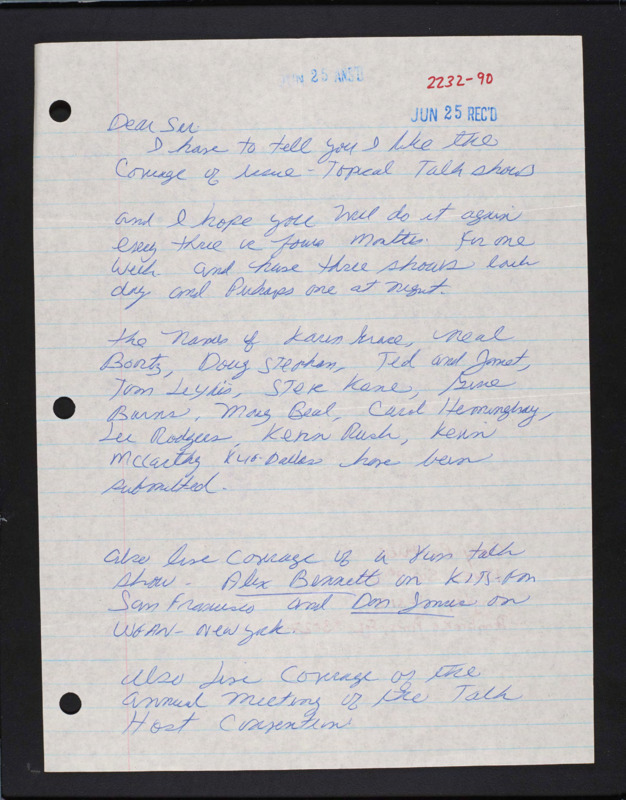 JUN 25 ANS'D
2232-90
JUN 25 REC'D
Dear Sir
I have to tell you I like the
Coverage of Issue-Topical Talk shows
and I hope you will do it again
every three or four months. For one
week and have three shows each
day and Perhaps one at night.
the names of Karen Grace, Neal
Boortz, Doug Stephan, Ted and Janet,
Tom Leykis, Steve Kane, Gene
Burns, Merg Beal, Carol Hemingway,
Lee Rodgers, Kevin Rush, Kevin
McCarthy KLIF-Dallas have been
submitted.
also live coverage of a Fun talk
show - Alex Bennett on KITS-FM
San Francisco and Don Imus on
WFAN - New York.
Also live Coverage of the
annual meeting of the Talk
Host Convention